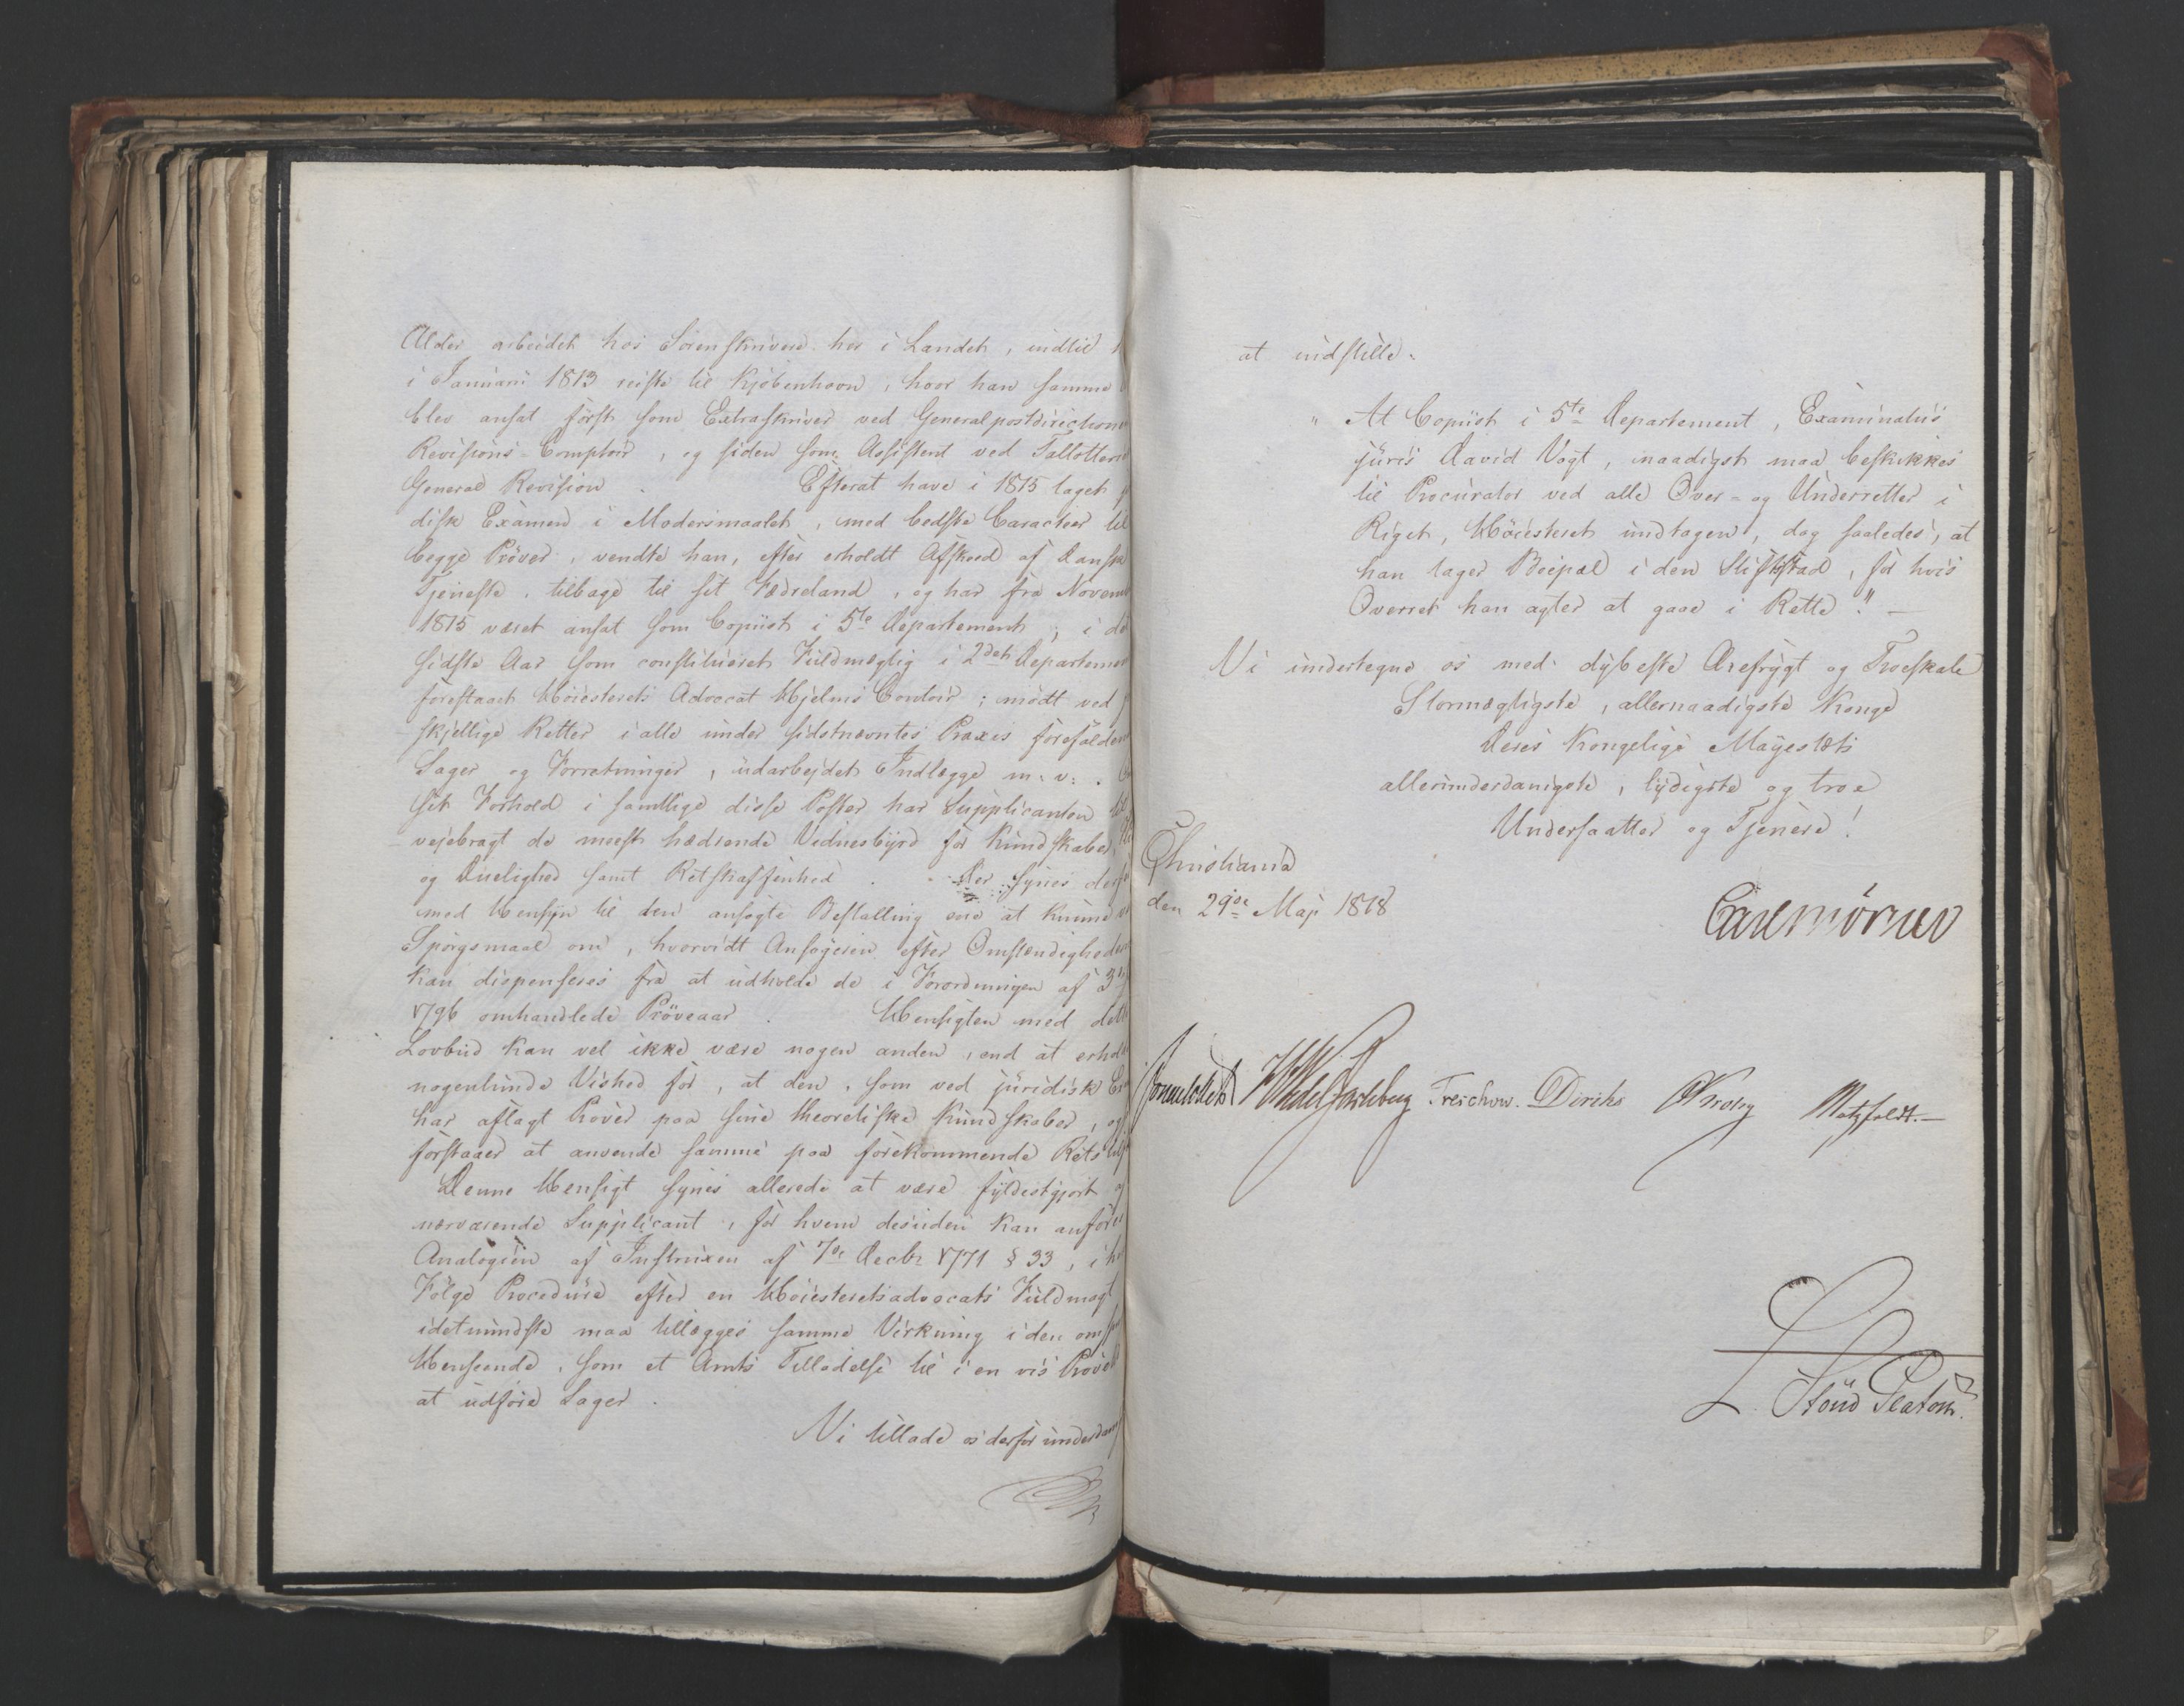 Alder arbeidet hos Sorenskrivere her i Landet, indtil
i Januari 1813 reiste til Kjøbenhavn, hvor han samme
blev ansat først som Extraskriver ved Generalpostdirections
Revisions-Comptoir, og siden som Assistent ved Tallotteri
General Revision. Efterat have i 1815 taget
disk Examen i Modersmaalet, med bedste Caracteer til
begge Prøver, vendte han, efter erholdt Afskeed af dansk
Tjeneste, tilbage til sit Fædreland, og har fra Novem
1815 været ansat som Copiist i 5te Departement; i de
sidste Aar som constitueret Fuldmægtig i 2det Departemen
forestaaet Høiesterets Advocat Hjelms Contoir; mødt ved
skjellige Retter i alle under sidstnævntes Praxis forefalden
Sager og Forretninger, udarbejdet Indlægge m: v: .
sit Forhold i samtlige disse Poster har Supplicanten
vejebragt de meest hædrende Vidnesbyrd for Kundskaber
og Duelighed samt Retskaffenhed. Der synes der
med Hensyn til den ansøgte Bestalling at kunne
Spørgsmaal om, hvorvidt Ansøgeren efter Omstændigheder
kan dispenseres fra at udholde de i Forordningen af 3
1796 omhandlede Prøveaar. Hensigten med dette
Lovbud kan vel ikke være nogen anden, end at erhol
nogenlunde Vished for, at den, som ved juridisk Ex
har aflagt Prøver paa sine theoretiske Kundskaber, og
forstaaer at anvende samme paa forekommende Rets
Denne Hensigt synes allerede at være fyldestgjort
nærværende Supplicant, for hvem desuden kan anføres
Analogien af Instruxen af 7de Decbr 1771 § 33, i
Følge Procedure efter en Høiesteretsadvocats Fuldmagt
idetmindste maa tillægges samme Virkning i den om
Henseende, som et Amts Tilladelse til i en vis
at udføre Sager.
Vi tillade os derfor underdan
at indstille:
" At Copiist i 5te Departement, Examinatus
juris David Vogt, naadigst maa beskikkes
til Procurator ved alle Over- og Underretter i
Riget, Høiesteret undtagen, dog saaledes, at
han tager Boepæl i den Stiftsstad, for hvis
Overret han agter at gaae i Rette." —
Vi undertegne os med dybeste Ærefrygt og Troeskab
Stormægtigste, allernaadigste Konge
Deres Kongelige Majestæts
allerunderdanigste, lydigste og troe
Undersaatter og Tjenere!
Christiania
den 29de Maji 1818
Carl Mörner
Sommerhielm HWedelJarlsberg Treschow. Diriks Krog Motzfeldt. —
L. Stoud Platou